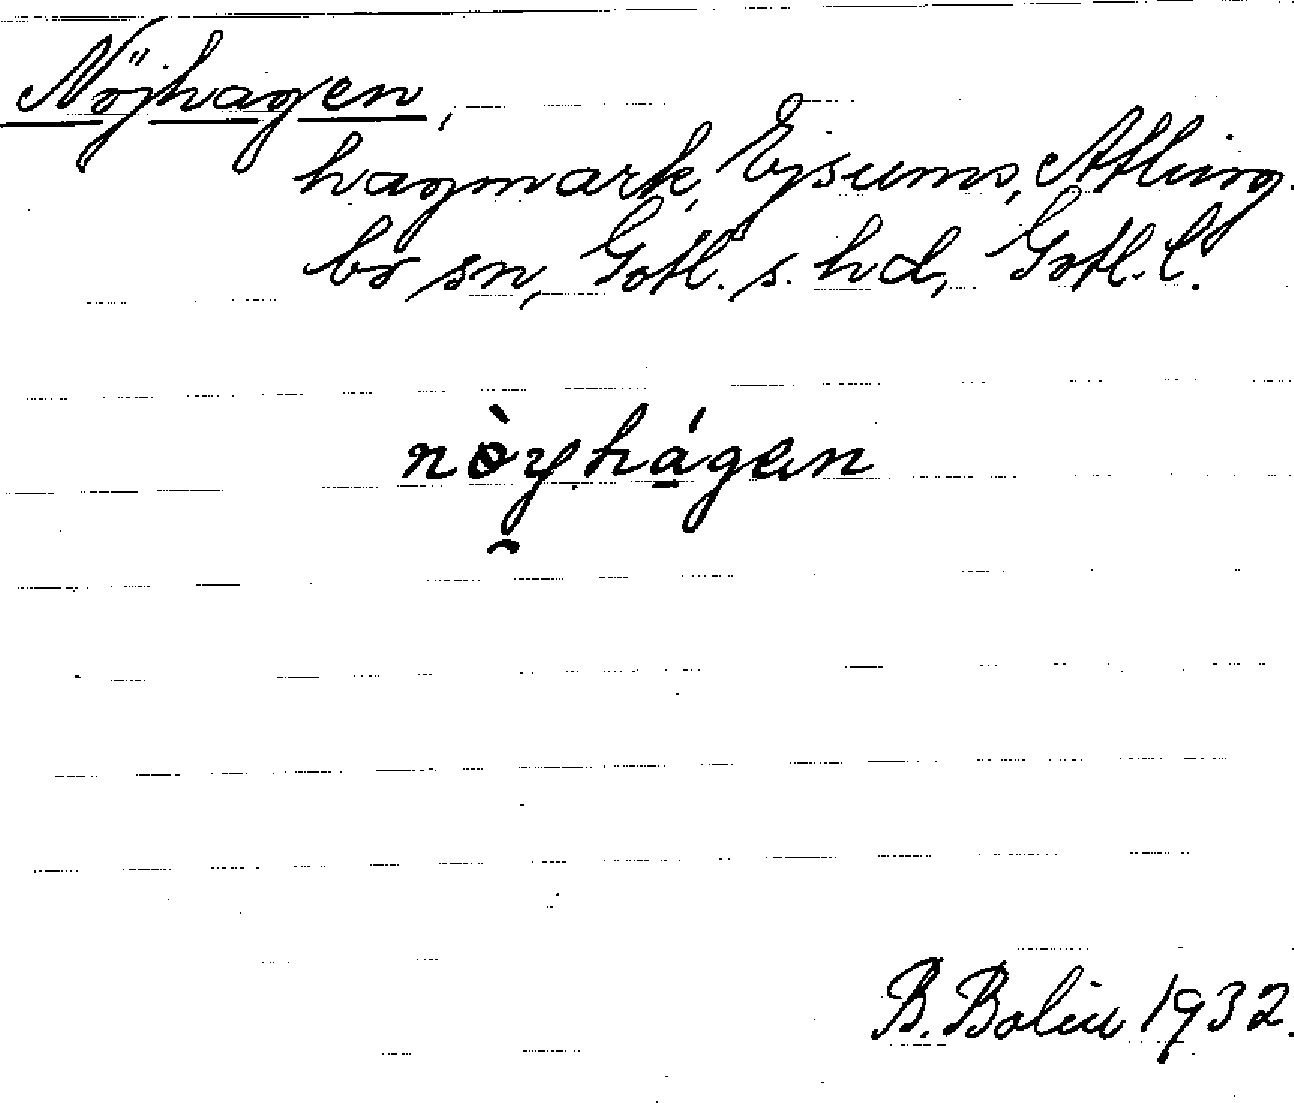 Nöjhagen,
hagmark, Ejsums, Atling-
bo sn, Gotl. s. hd, Gotl. l.
nòyhágen
B. Bolin 1932.